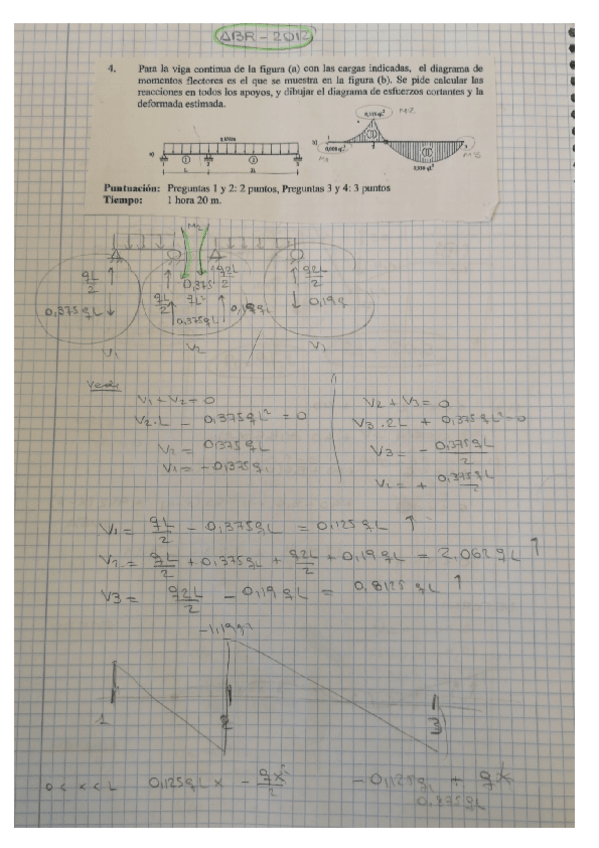 ABR - 2012
4. Para la viga continua de la figura (a) con las cargas indicadas, el diagrama de
momentos flectores es el que se muestra en la figura (b). Se pide calcular las
reacciones en todos los apoyos, y dibujar el diagrama de esfuerzos cortantes y la
deformada estimada.
M2
M1
M3
a)
b)
1
2
L
2L
Puntuación: Preguntas 1 y 2: 2 puntos, Preguntas 3 y 4: 3 puntos
Tiempo: 1 hora 20 m.
qL/2
0,375qL
qL/2
0,375qL
q2L/2
q2L/2
0,19q
V1
V2
V3
V1 + V2 = 0
V2·L - 0,375qL² = 0
V2 = 0,375qL
V1 = -0,375q
V2 + V3 = 0
V3·2L + 0,375qL² = 0
V3 = - 0,375qL/2
V2 = + 0,375qL/2
V1 = qL/2 - 0,375qL = 0,125qL ↑
V2 = qL/2 + 0,375qL + q2L/2 + 0,19qL = 2,062qL ↑
V3 = q2L/2 - 0,19qL = 0,8125qL ↑
1
2
3
0 < x < L 0,125qLx - qx²/2
-0,125qL + qx